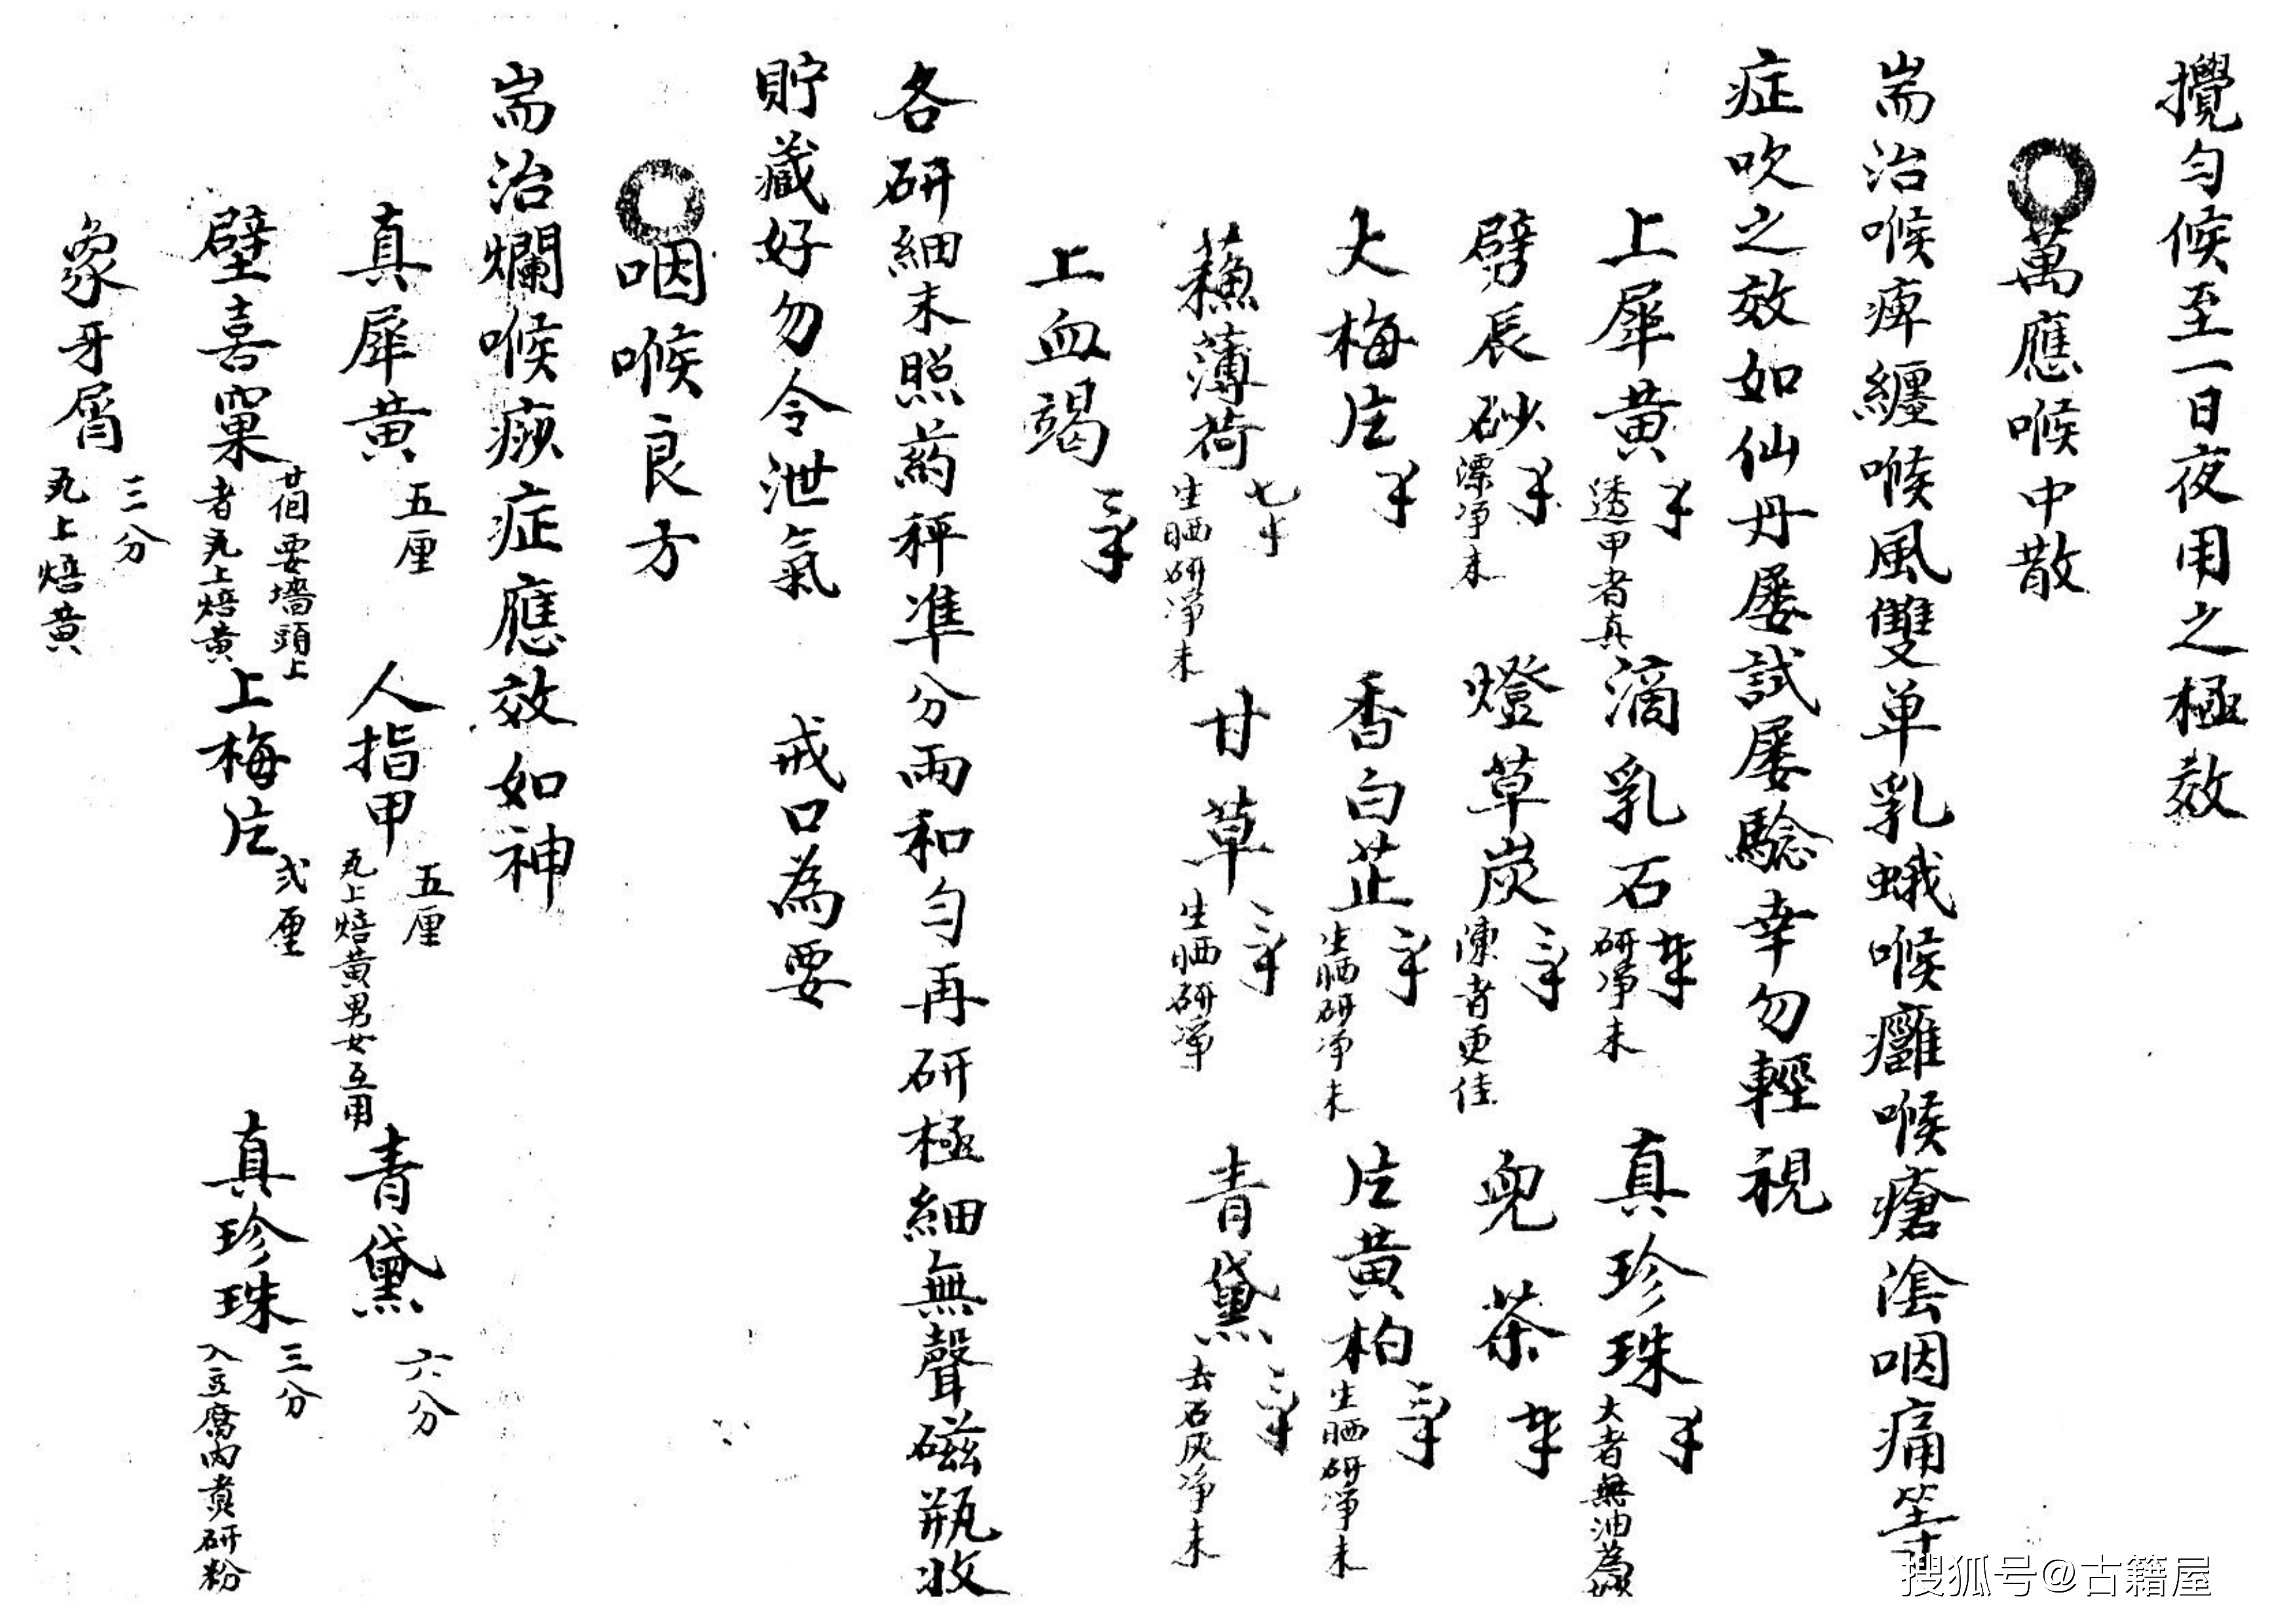 攪勻候至一日夜用之極效
萬應喉中散
耑治喉痺纏喉風雙单乳蛾喉癰喉瘡瘖咽痛等
症吹之效如仙丹屡試屡驗幸勿輕視
上犀黄 透甲者真 滴乳石 研净末 真珍珠 大者無油為
劈辰砂 漂净末 燈草炭 陳者更佳 兜茶
大梅片 香白芷 生晒研净末 片黄柏 生晒研净末
蘓薄荷 生晒研净末 甘草 生晒研净 青黛 去石灰净末
上血竭
各研細末照药秤準分兩和勻再研極細無聲磁瓶收
貯藏好勿令泄氣 戒口為要
咽喉良方
耑治爛喉痧症應效如神
真犀黄 五厘 人指甲 五厘 瓦上焙黄男女互用 青黛 六分
壁喜窠 廿個要墻頭上者瓦上焙黄 上梅片 弍厘 真珍珠 三分 入豆腐内煮研粉
象牙屑 三分 瓦上焙黄
搜狐号@古籍屋